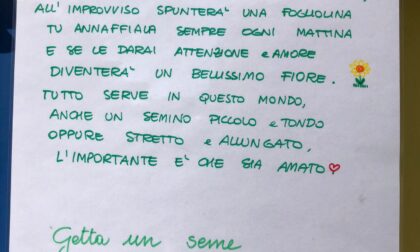 ALL'IMPROVVISO SPUNTERA' UNA FOGLIOLINA
TU ANNAFFIALA SEMPRE OGNI MATTINA
E SE LE DARAI ATTENZIONE e AMORE
DIVENTERA' UN BELLISSIMO FIORE.
TUTTO SERVE IN QUESTO MONDO,
ANCHE UN SEMINO PICCOLO e TONDO
OPPURE STRETTO e ALLUNGATO,
L'IMPORTANTE E' CHE SIA AMATO
Getta un seme